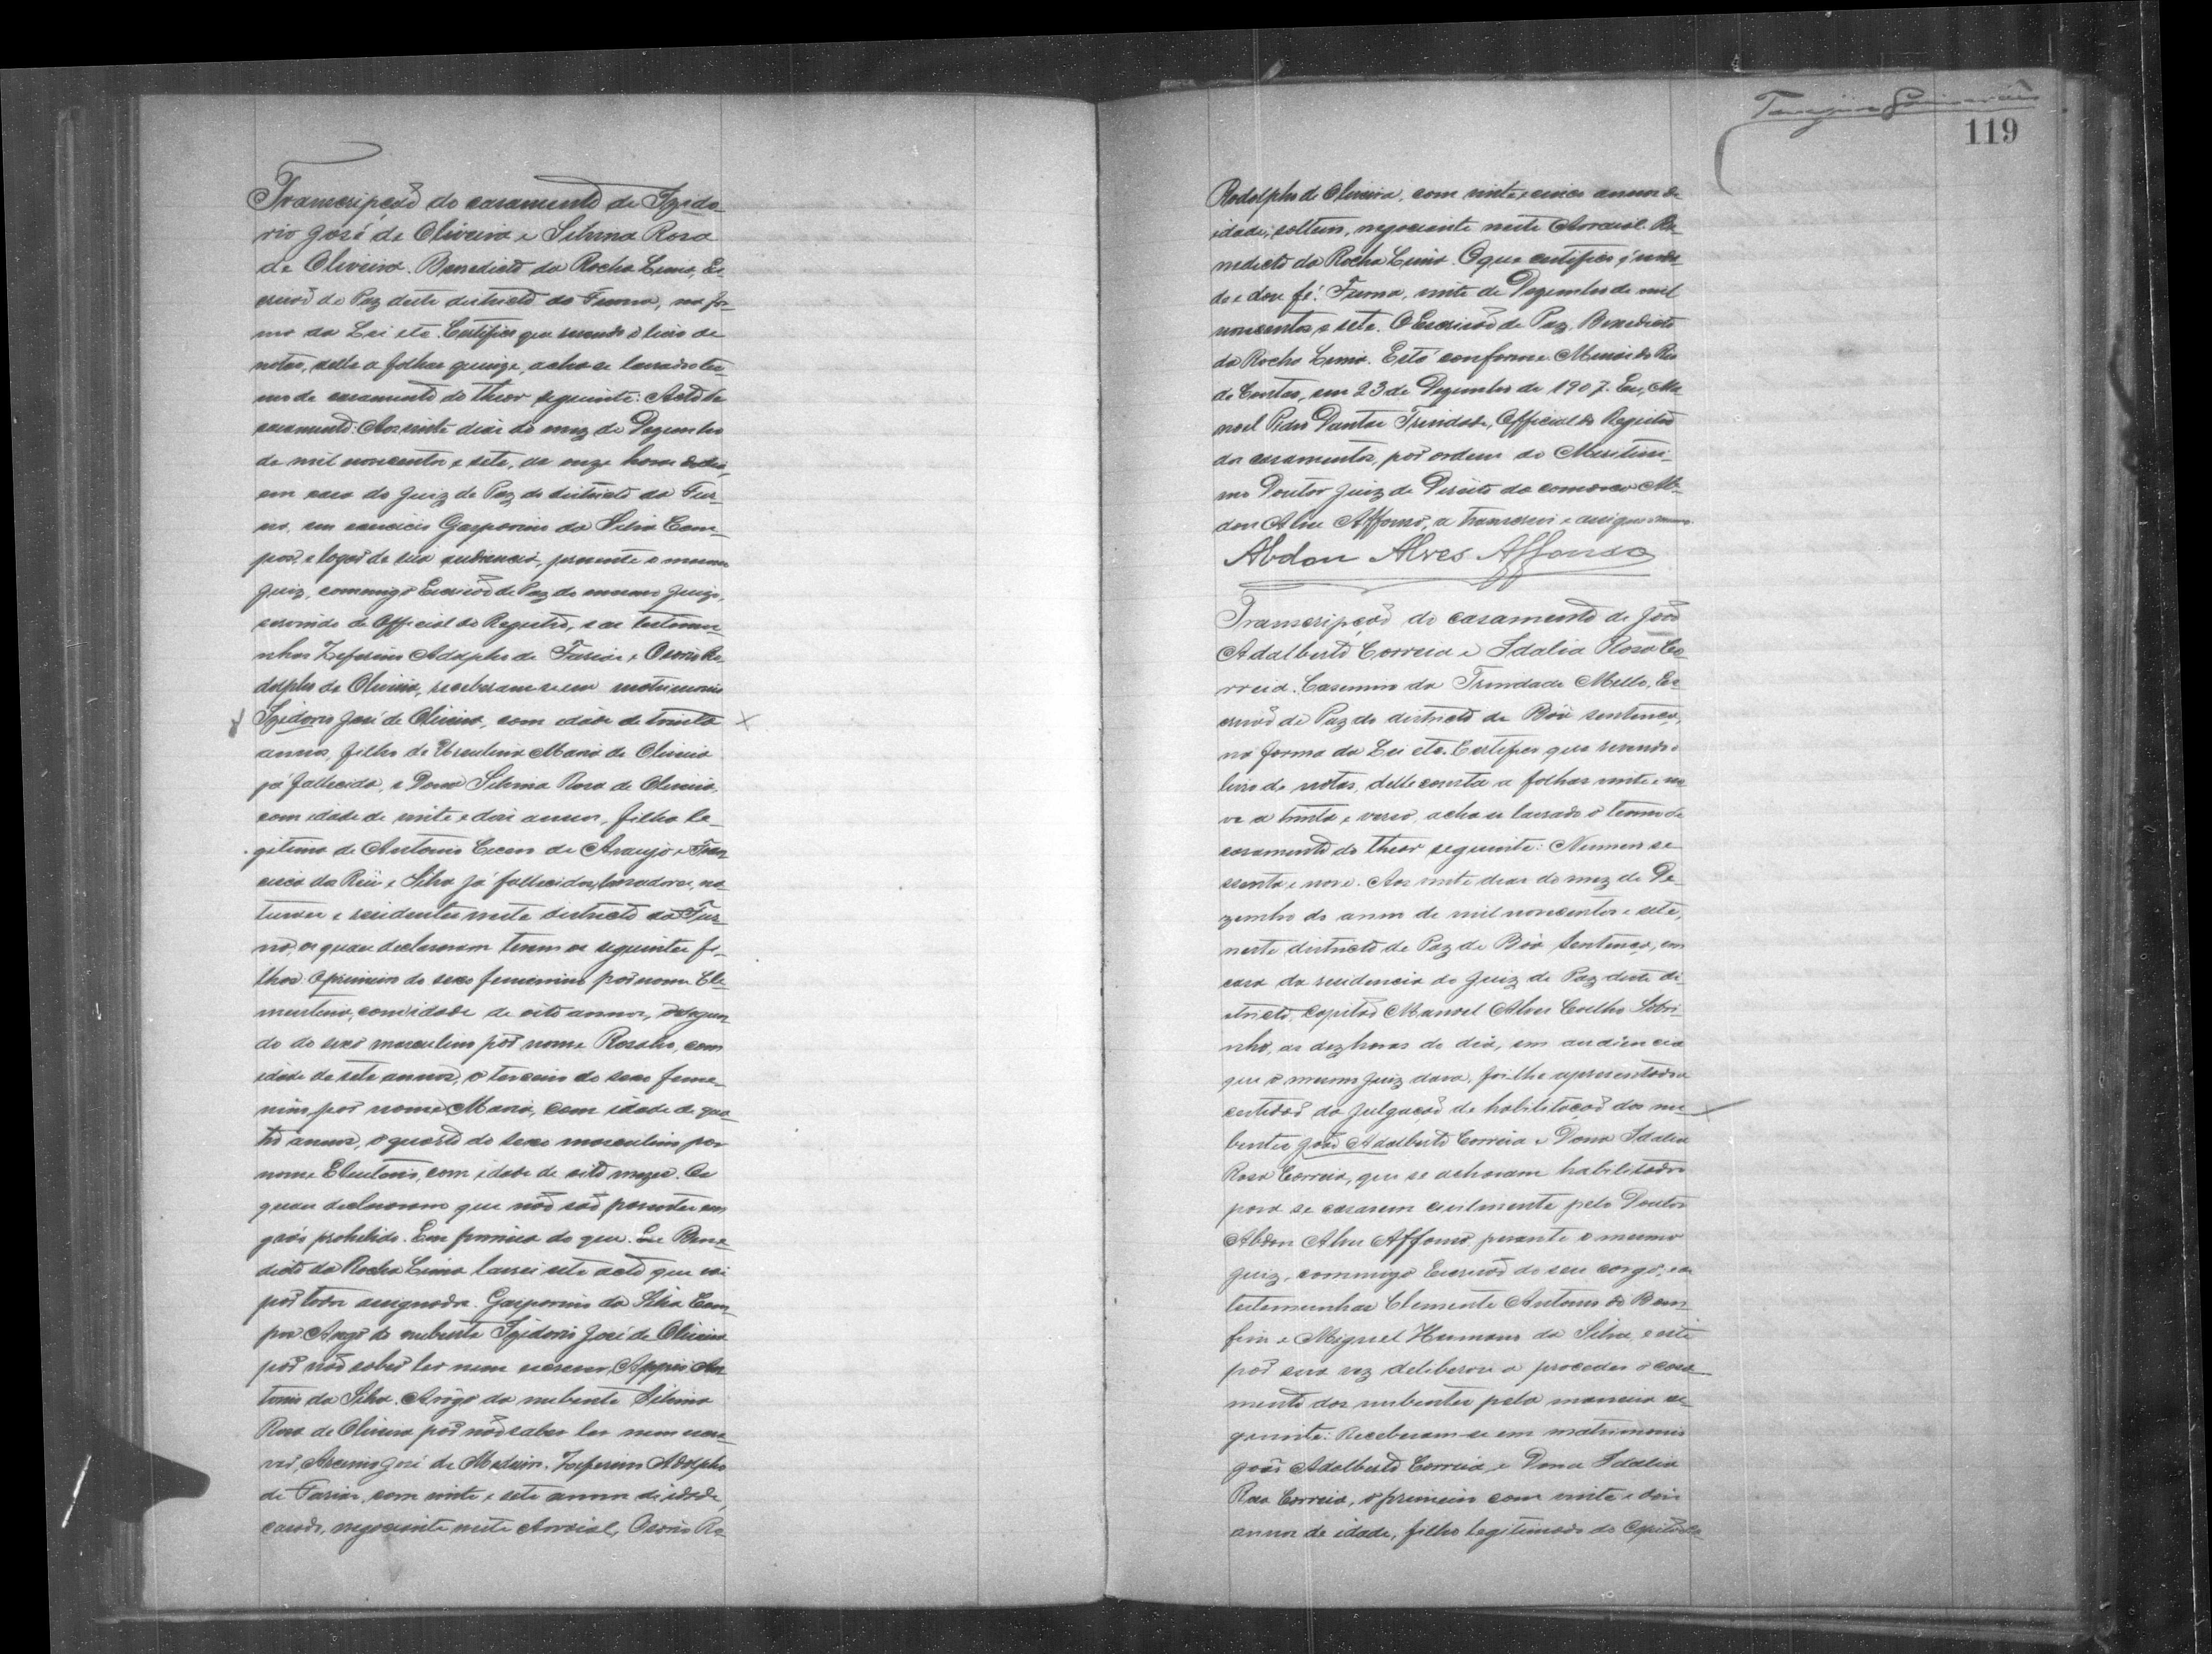 Transcripção do casamento de Izido-
rio José de Oliveira e Silvina Rosa
de Oliveira. Benedicto da Rocha Lima, Es-
crivão de Paz deste districto do Furna, na for-
ma da Lei etc. Certifico que revendo o livro de
notas, delle a folhas quinze, acha-se lavrado o ter-
mo de casamento do theor seguinte: Acto de
casamento: Aos vinte dias do mez de Dezembro
de mil novecentos e sete, as onze horas do dia,
em casa do Juiz de Paz do districto da Fur-
na, em exercicio Gasparino da Silva Cam-
pos, e logar de sua audiencia, presente o mesmo
Juiz, commigo Escrivão de Paz do mesmo Juizo,
servindo de Official do Registro, e as testemu-
nhas Zeferino Adolpho de Farias e Osorio Ro-
dolpho de Oliveira, receberam-se em matrimonio
Izidorio José de Oliveira, com idade de trinta
annos, filho de Herculina Maria de Oliveira
já fallecida, e Dona Silvina Rosa de Oliveira,
com idade de vinte e dois annos, filha le-
gitima de Antonio de Araujo e Fran-
cisca dos Reis e Silva já fallecidos, lavradores, na-
turaes e residentes neste districto da Fur-
na, os quaes declararam terem os seguintes fi-
lhos: O primeiro do sexo femenino por nome Cle-
mentina, com idade de oito annos, o segun-
do do sexo masculino por nome Rosalvo, com
idade de sete annos, o terceiro do sexo feme-
nino por nome Maria, com idade de qua-
tro annos, o quarto do sexo masculino por
nome Eleuterio, com idade de oito mezes. Os
quaes declararam que não são parentes em
gráo prohibido. Em firmeza do que Eu Bene-
dicto da Rocha Lima lavrei este acto que vai
por todos assignado. Gasparino da Silva Cam-
pos. Arogo do nubente Izidorio José de Oliveira
por não saber ler nem escrever, An-
tonio da Silva. Arogo da nubente Silvina
Rosa de Oliveira por não saber ler nem escre-
ver, Arcenio José de Medeiros. Zeferino Adolpho
de Farias, com vinte e sete annos de idade,
casado, negociante neste Arraial, Osorio Ro-
Tanajura Guimarães
119
Rodolpho de Oliveira, com vinte e cinco annos de
idade, solteiro, negociante neste Arraial. Be-
nedicto da Rocha Lima. O que certifico é verda-
de e dou fé. Furna, vinte de Dezembro de mil
novecentos e sete. O Escrivão de Paz, Benedicto
da Rocha Lima. Está conforme. Minas do Rio
de Contas, em 23 de Dezembro de 1907. Eu, Ma-
noel Pedro Dantas Trindade, Official do Registro
dos casamentos, por ordem do Meritissi-
mo Doutor Juiz de Direito da comarca Ab-
don Alves Affonso, a transcrevi e assigno
Abdon Alves Affonso
Transcripção do casamento de João
Adalberto Correia e Idalia Rosa Co-
rreia. Casemiro da Trindade Mello, Es-
crivão de Paz do districto de Bôa Sentença,
na forma da Lei etc. Certifico que revendo o
livro de notas, delle consta a folhas vinte e no-
ve a trinta e verso, acha-se lavrado o termo de
casamento do theor seguinte: Numero se-
ssenta e nove. Aos vinte dias do mez de De-
zembro do anno de mil novecentos e sete,
neste districto de Paz de Bôa Sentença, em
casa da residencia do Juiz de Paz deste di-
stricto, Capitão Manoel Alves Coelho Sobri-
nho, as dez horas do dia, em audiencia
que o mesmo Juiz dava, foi-lhe apresentada a
certidão da julgação de habilitação dos nu-
bentes João Adalberto Correia e Dona Idalia
Rosa Correia, que se acharam habilitados
para se casarem civilmente pelo Doutor
Abdon Alves Affonso perante o mesmo
Juiz, commigo Escrivão do seu cargo, e as
testemunhas Clemente Antonio do Bom-
fim e Miguel Humano da Silva, e este
por sua vez deliberou a proceder o casa-
mento dos nubentes pela maneira se-
guinte: Receberam-se em matrimonio
João Adalberto Correia, e Dona Idalia
Rosa Correia, o primeiro com vinte e dois
annos de idade, filho legitimado do Capitão